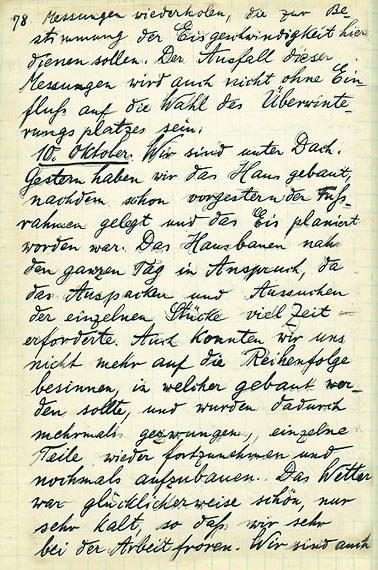 78 Messungen wiederholen, die zur Be-
stimmung der Eisgeschwindigkeit hier
dienen sollen. Der Ausfall dieser
Messungen wird auch nicht ohne Ein
fluß auf die Wahl das Überwinte-
rungsplatzes sein.
10. Oktober. Wir sind unter Dach.
Gestern haben wir das Haus gebaut,
nachdem schon vorgestern der Fuß-
rahmen gelegt und das Eis planiert
worden war. Das Hausbauen nah
den ganzen Tag in Anspruch, da
das Auspacken und Aussuchen
der einzelnen Stücke viel Zeit
erforderte. Auch konnten wir uns
nicht mehr auf die Reihenfolge
besinnen, in welcher gebaut wer-
den sollte, und wurden dadurch
mehrmals gezwungen, einzelne
Teile wieder fortzunehmen und
nochmals aufzubauen. Das Wetter
war glücklicherweise schön, nur
sehr kalt, so daß wir sehr
bei der Arbeit froren. Wir sind auch